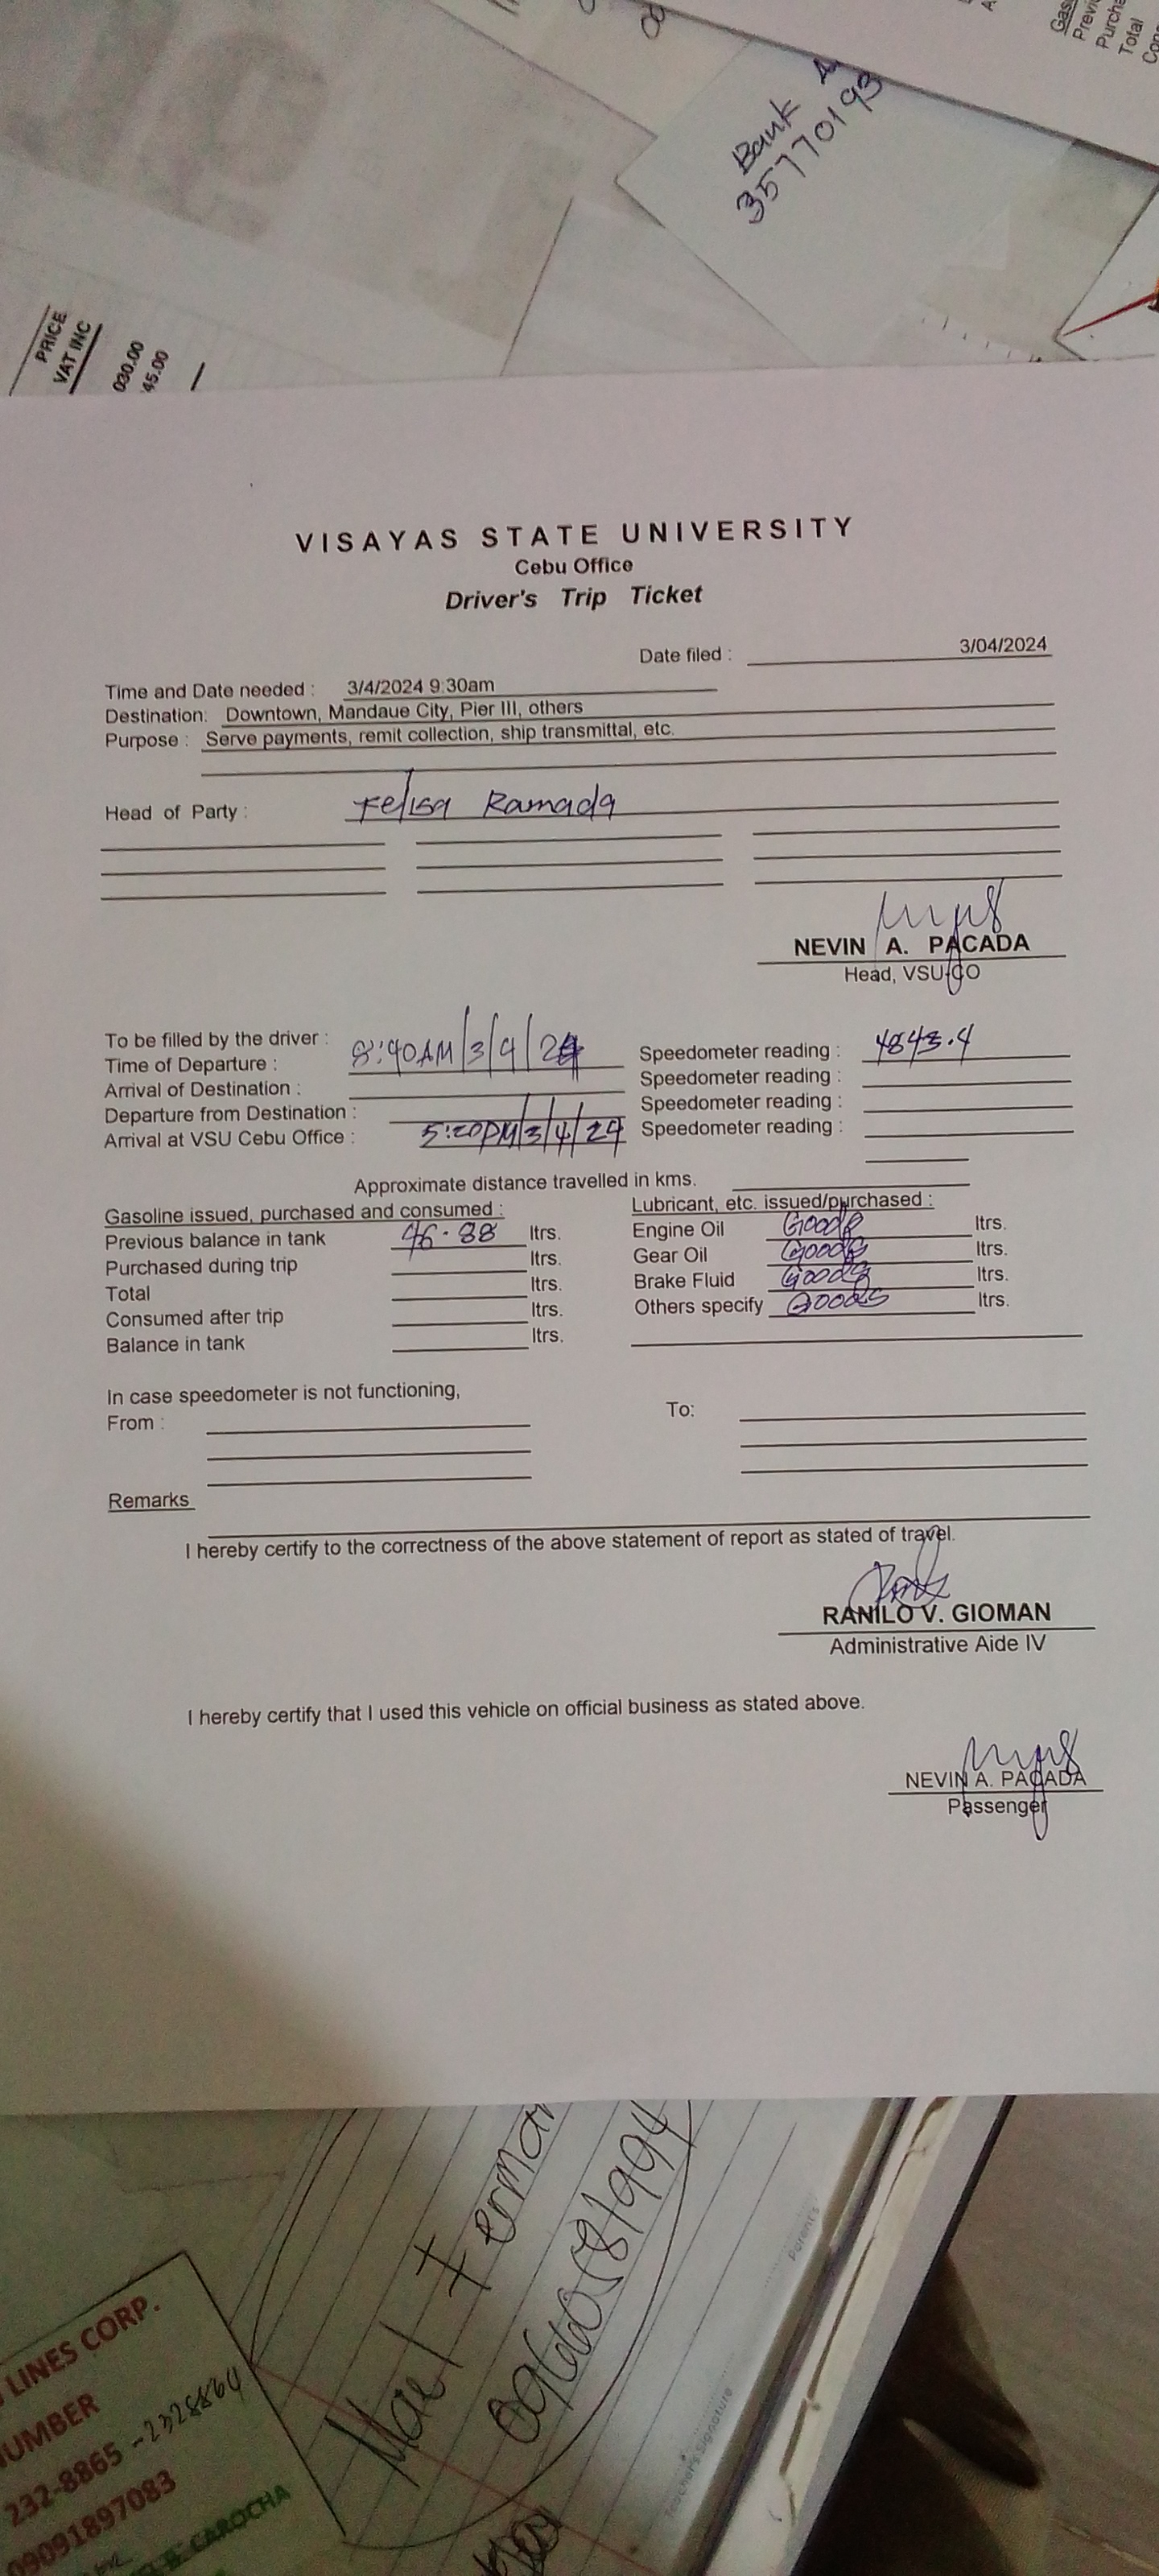 Gas
Previ
Purcha
Total
Con
Bank
35770193
PRICE
VAT INC
030.00
45.00
VISAYAS STATE UNIVERSITY
Cebu Office
Driver's Trip Ticket
Date filed : 3/04/2024
Time and Date needed : 3/4/2024 9:30am
Destination: Downtown, Mandaue City, Pier III, others
Purpose : Serve payments, remit collection, ship transmittal, etc.
Head of Party : Felisa Ramada
NEVIN A. PACADA
Head, VSU-CO
To be filled by the driver :
Time of Departure : 8:40AM/3/4/24 Speedometer reading : 4843.4
Arrival of Destination : Speedometer reading :
Departure from Destination : Speedometer reading :
Arrival at VSU Cebu Office : 5:20PM/3/4/24 Speedometer reading :
Approximate distance travelled in kms.
Gasoline issued, purchased and consumed : Lubricant, etc. issued/purchased :
Previous balance in tank 46.88 ltrs. Engine Oil Goods ltrs.
Purchased during trip ltrs. Gear Oil Goods ltrs.
Total ltrs. Brake Fluid Goods ltrs.
Consumed after trip ltrs. Others specify Goods ltrs.
Balance in tank ltrs.
In case speedometer is not functioning,
From : To:
Remarks
I hereby certify to the correctness of the above statement of report as stated of travel.
RANILO V. GIOMAN
Administrative Aide IV
I hereby certify that I used this vehicle on official business as stated above.
NEVIN A. PACADA
Passenger
Mael Ferman
Parent's
Teacher's Signature
LINES CORP.
NUMBER
232-8865 - 2328864
09091897083
CAROCHA